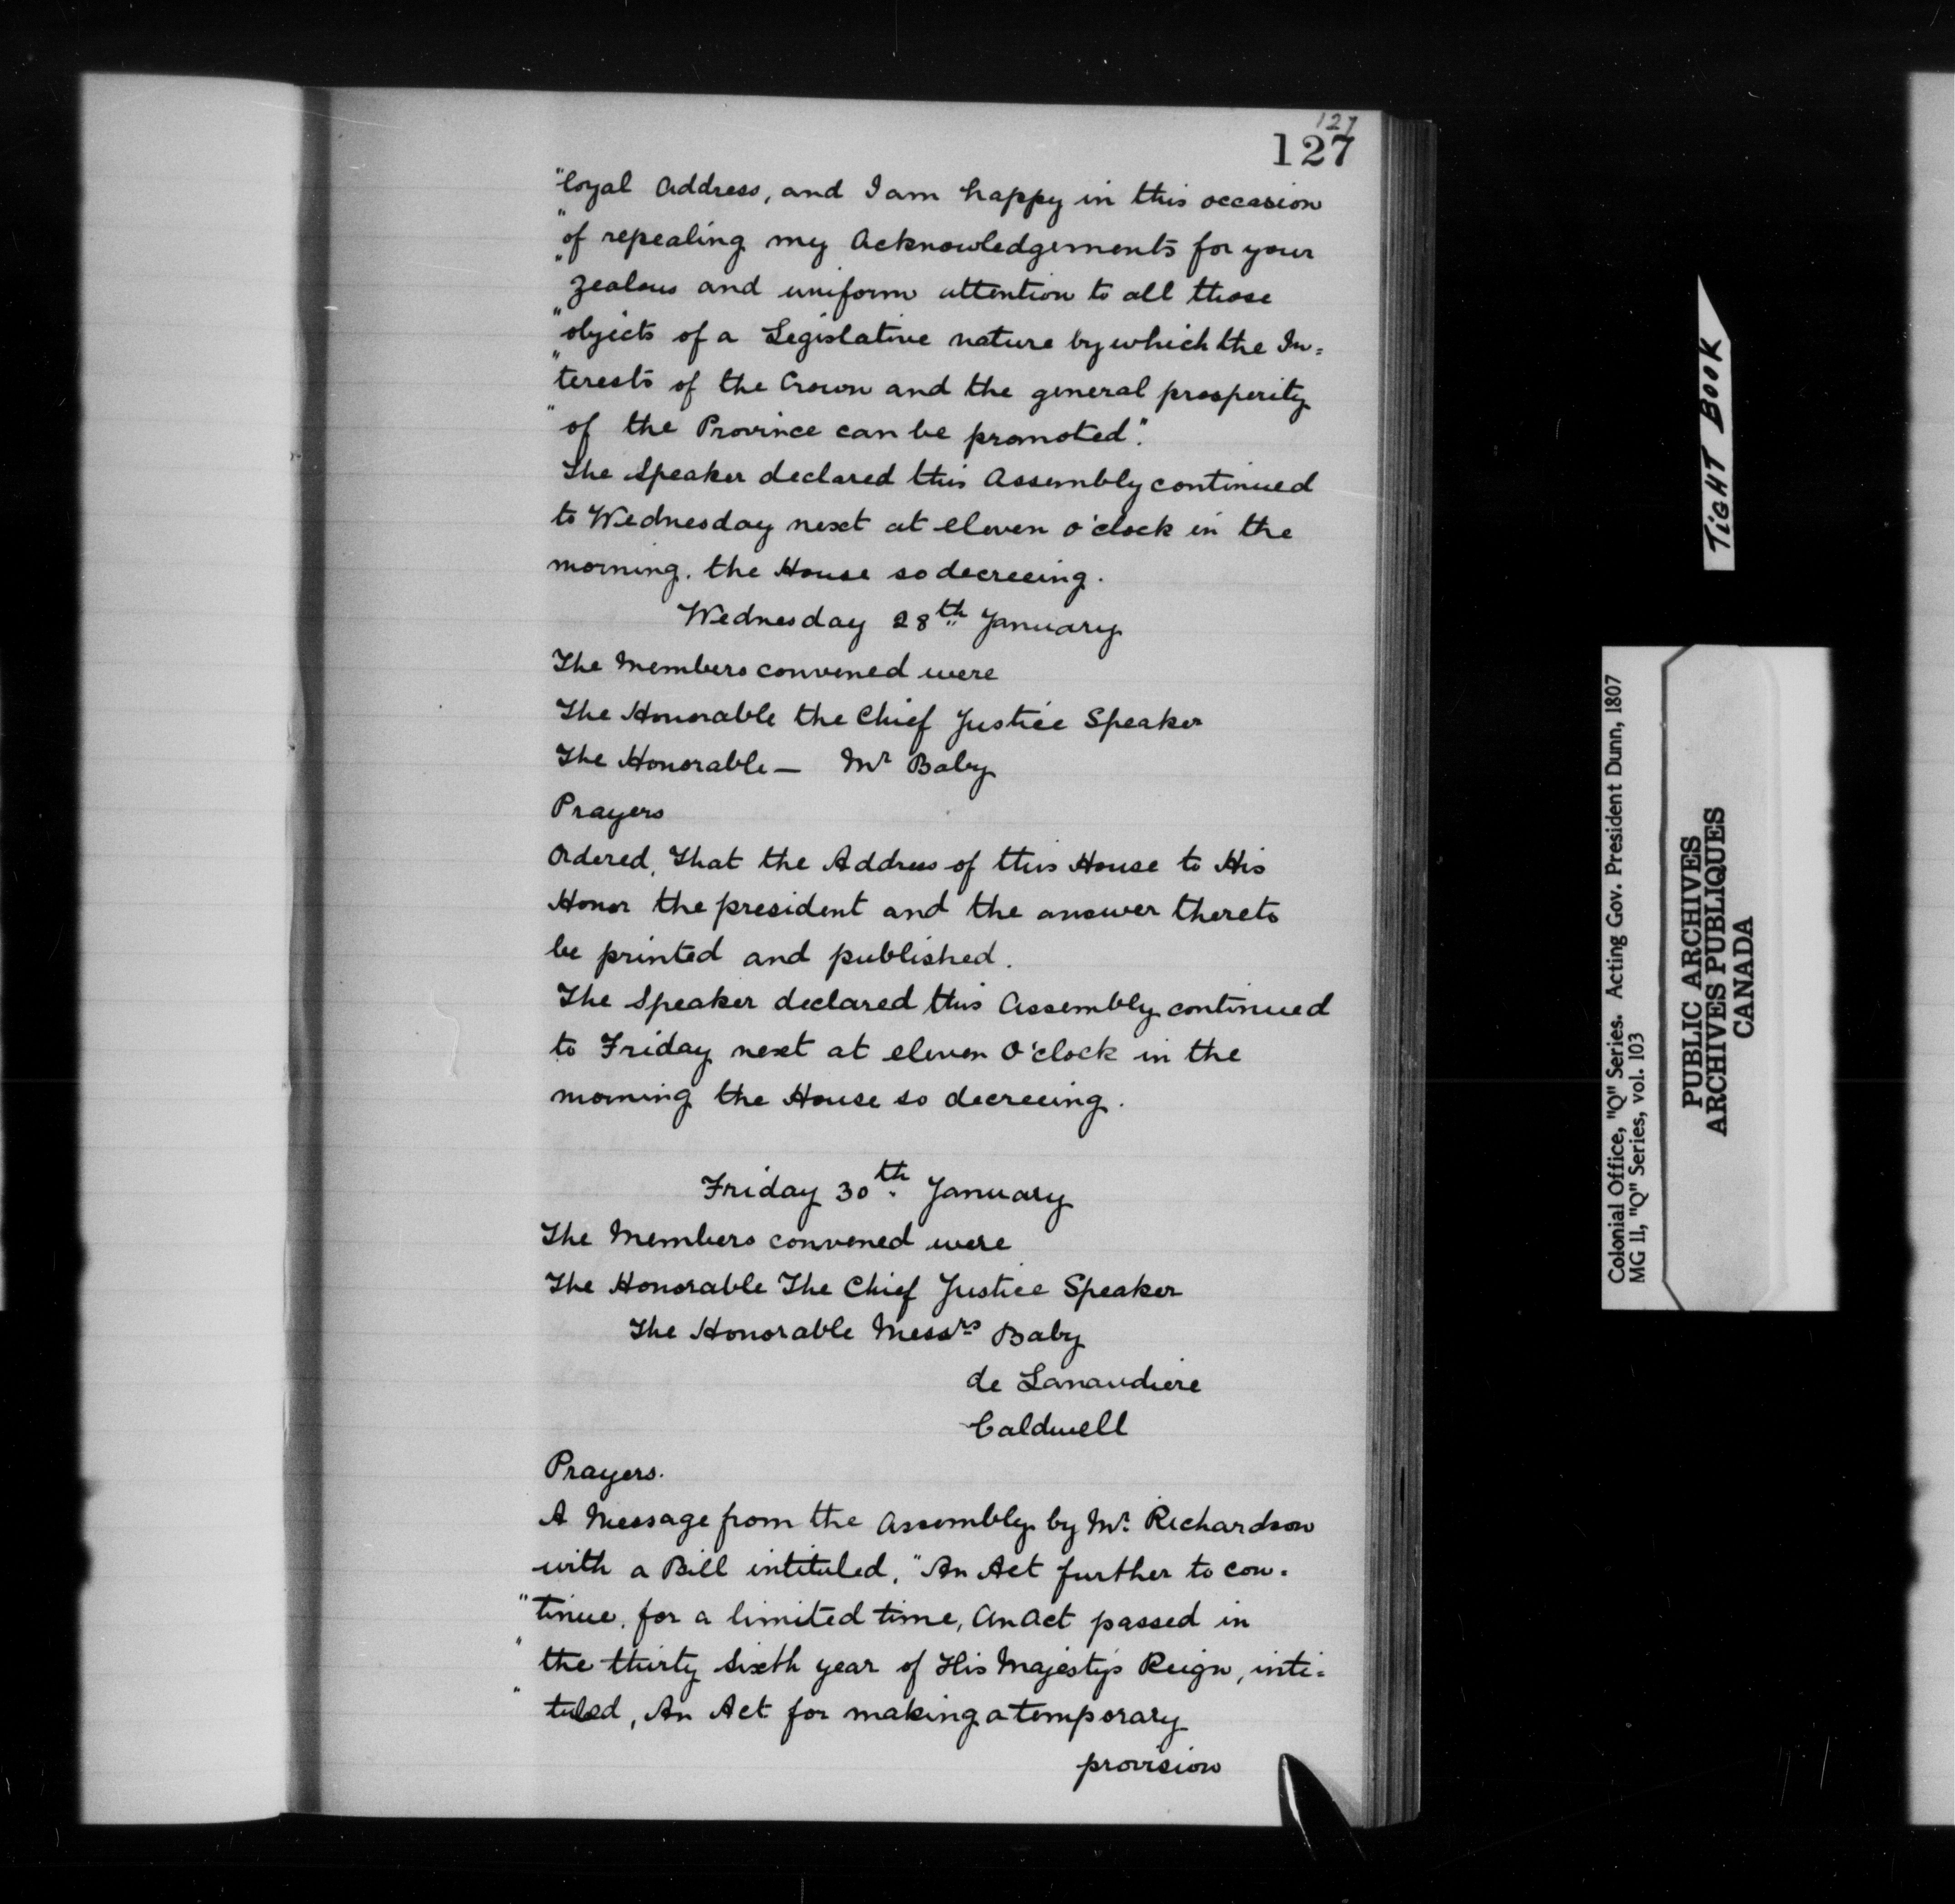 127
127
"loyal Address, and I am happy in this occasion
"of repealing my Acknowledgements for your
"zealous and uniform attention to all those
"objects of a Legislative nature by which the In=
"terests of the Crown and the general prosperity
"of the Province can be promoted".
The Speaker declared this Assembly continued
to Wednesday next at eleven o'clock in the
morning, the House so decreeing.
Wednesday 28th January
The Members convened were
The Honorable the Chief Justice Speaker
The Honorable — Mr Baby
Prayers
Ordered, That the Address of this House to His
Honor the president and the answer thereto
be printed and published.
The Speaker declared this Assembly continued
to Friday next at eleven O'clock in the
morning the House so decreeing.
Friday 30th January
The Members convened were
The Honorable The Chief Justice Speaker
The Honorable Messrs Baby
de Lanaudiere
Caldwell
Prayers.
A Message from the Assembly by Mr. Richardson
with a Bill intituled, "An Act further to con=
"tinue, for a limited time, An Act passed in
"the thirty sixth year of His Majesty's Reign, inti=
"tuled, An Act for making a temporary
provision
TIGHT BOOK
Colonial Office, "Q" Series. Acting Gov. President Dunn, 1807
MG 11, "Q" Series, vol. 103
PUBLIC ARCHIVES
ARCHIVES PUBLIQUES
CANADA